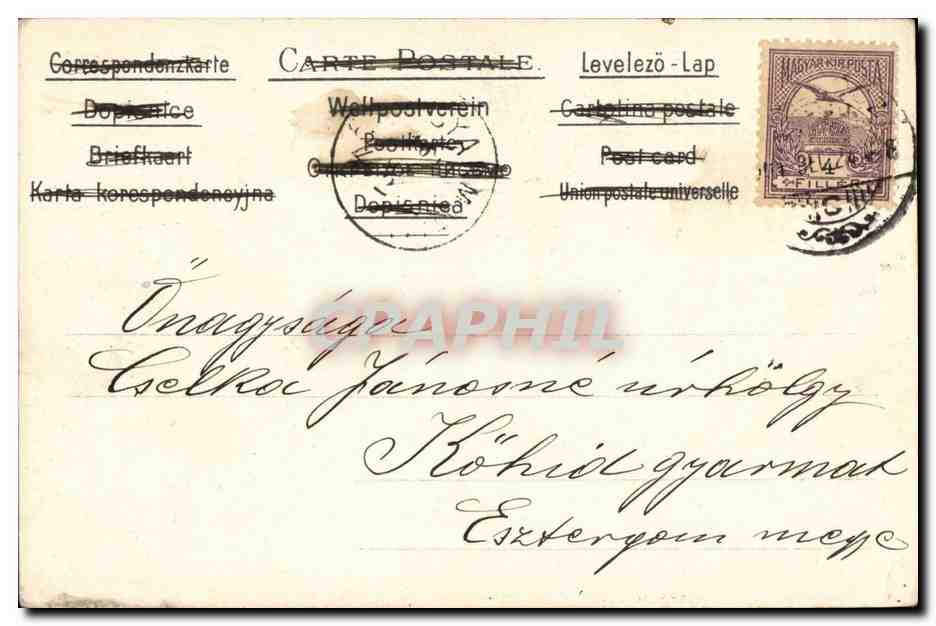 Correspondenzkarte
Dopisnice
Briefkaart
Karta korespondencyjna
CARTE POSTALE.
Weltpostverein
Postkarte
Dopisnica
Levelezö-Lap
Cartolina postale
Post card
Union postale universelle
MAGYAR KIR. POSTA
FILLÉR
Őnagysága
Cselka Jánosné úrhölgy
Kőhid gyarmat
Esztergom megye
CPAPHIL